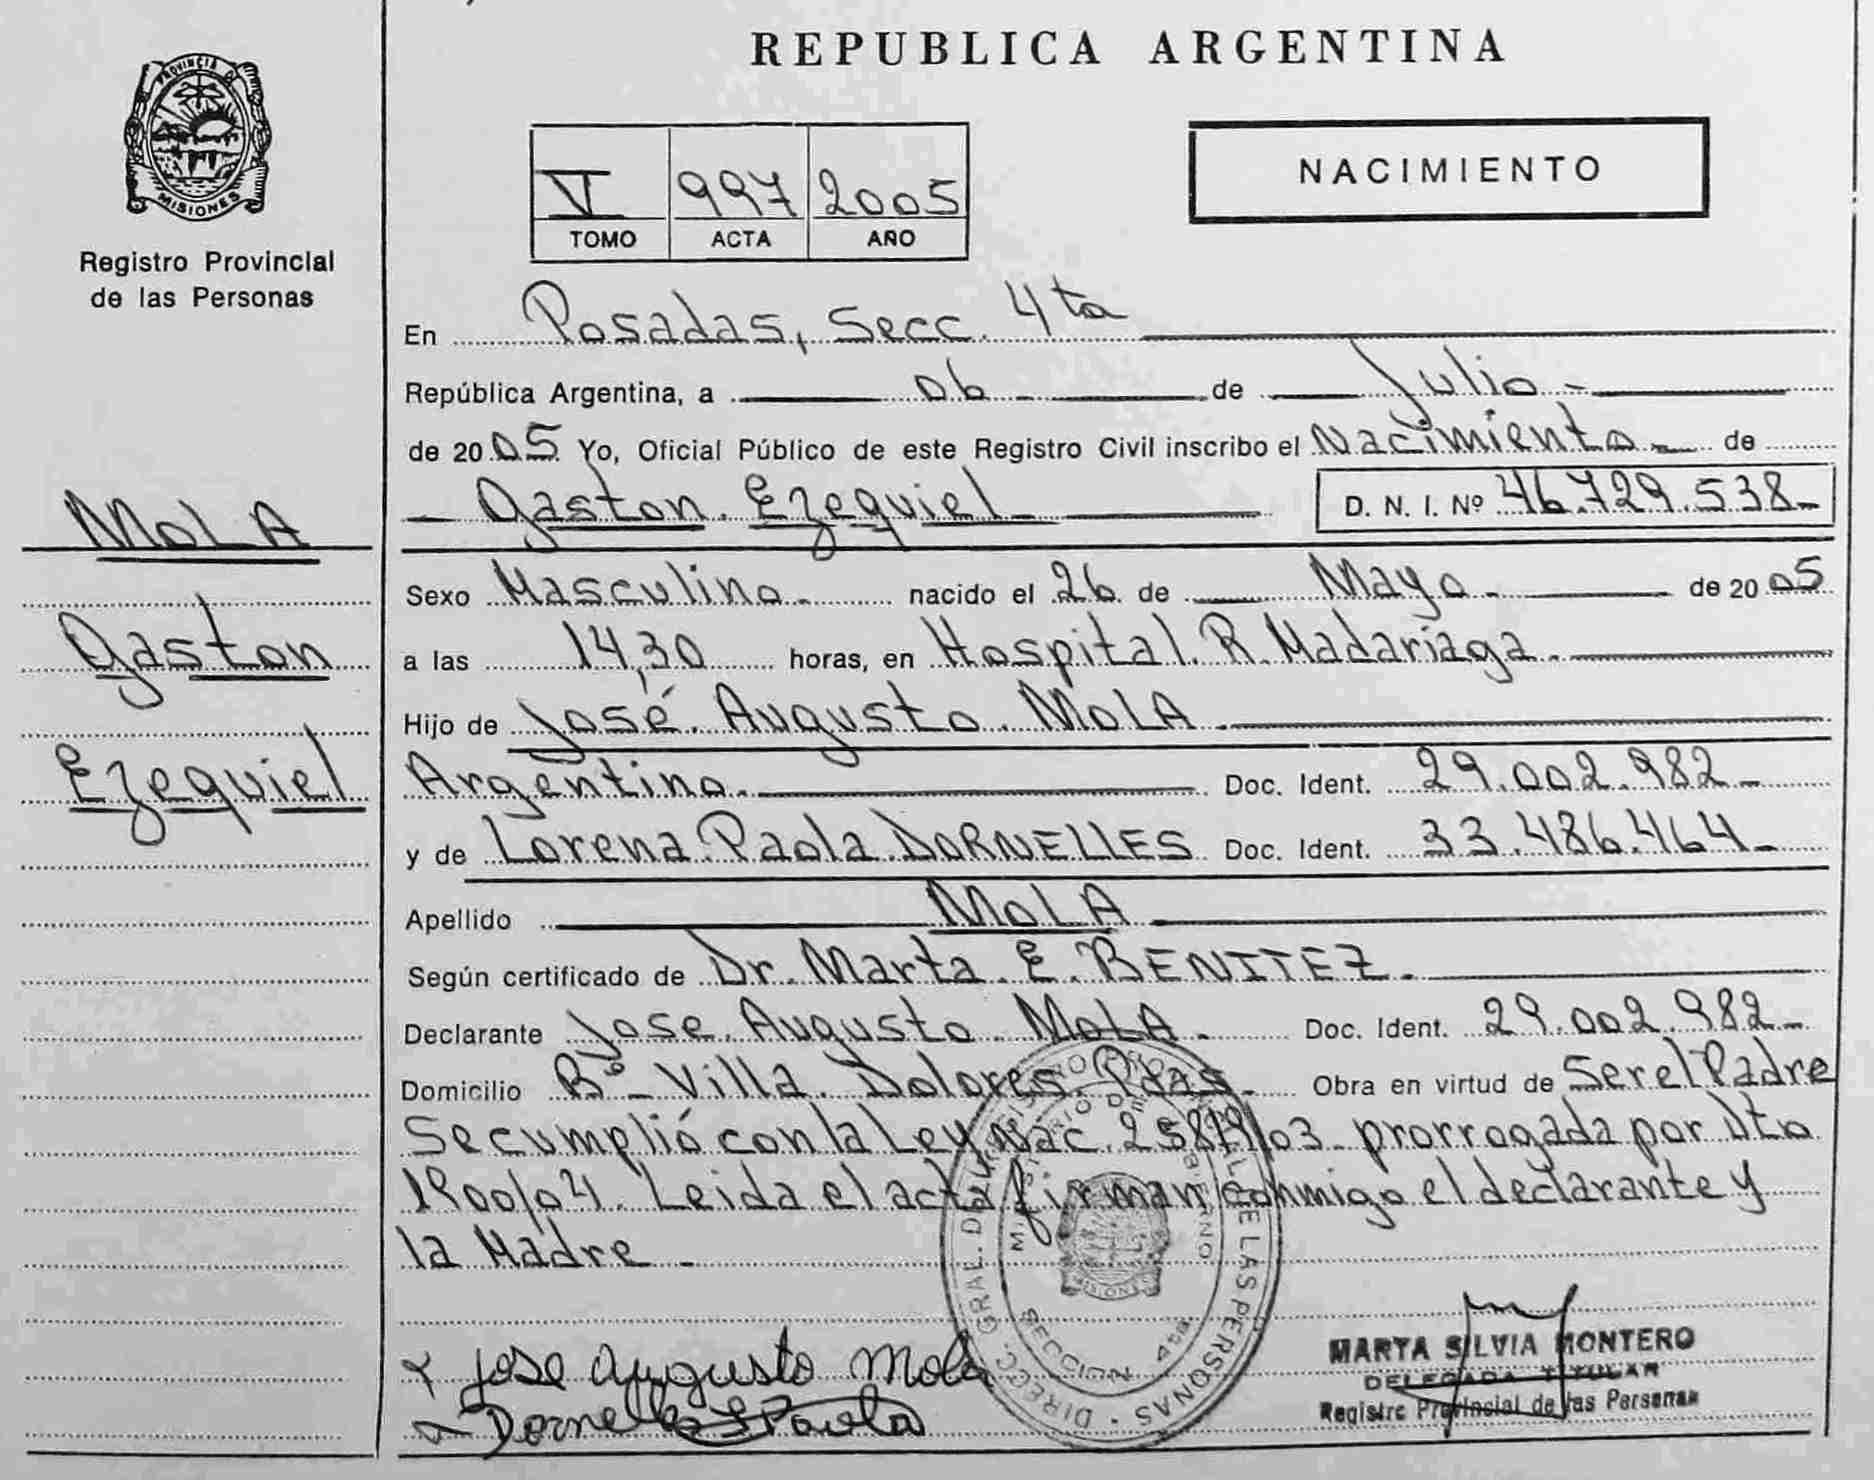 REPUBLICA ARGENTINA
PROVINCIA DE
MISIONES
Registro Provincial
de las Personas
V 997 2005
TOMO ACTA AÑO
NACIMIENTO
En Posadas, Secc. 4ta
República Argentina, a 06 de Julio -
de 2005 Yo, Oficial Público de este Registro Civil inscribo el Nacimiento - de
Gaston Ezequiel D. N. I. Nº 46.729.538-
MOLA
Gaston
Ezequiel
Sexo Masculino - nacido el 26 de Mayo - de 2005
a las 14,30 horas, en Hospital R. Madariaga -
Hijo de José Augusto MOLA -
Argentino. Doc. Ident. 29.002.982-
y de Lorena Paola DORNELLES Doc. Ident. 33.486.464-
Apellido MOLA -
Según certificado de Dr. Marta E. BENITEZ -
Declarante Jose Augusto MOLA - Doc. Ident. 29.002.982-
Domicilio Bº - Villa Dolores, Pdas - Obra en virtud de Ser el Padre
Se cumplió con la Ley Nac. 25819/03 prorrogada por Dto
1900/04. Leida el acta firman conmigo el declarante y
la Madre -
Jose Augusto Mola
Dornelles Paola
DIRECC. GRAL. DEL REGISTRO PROVINCIAL DE LAS PERSONAS
MINISTERIO DE GOBIERNO
MISIONES
SECCION 4ta
MARTA SILVIA MONTERO
DELEGADA TITULAR
Registro Provincial de las Personas